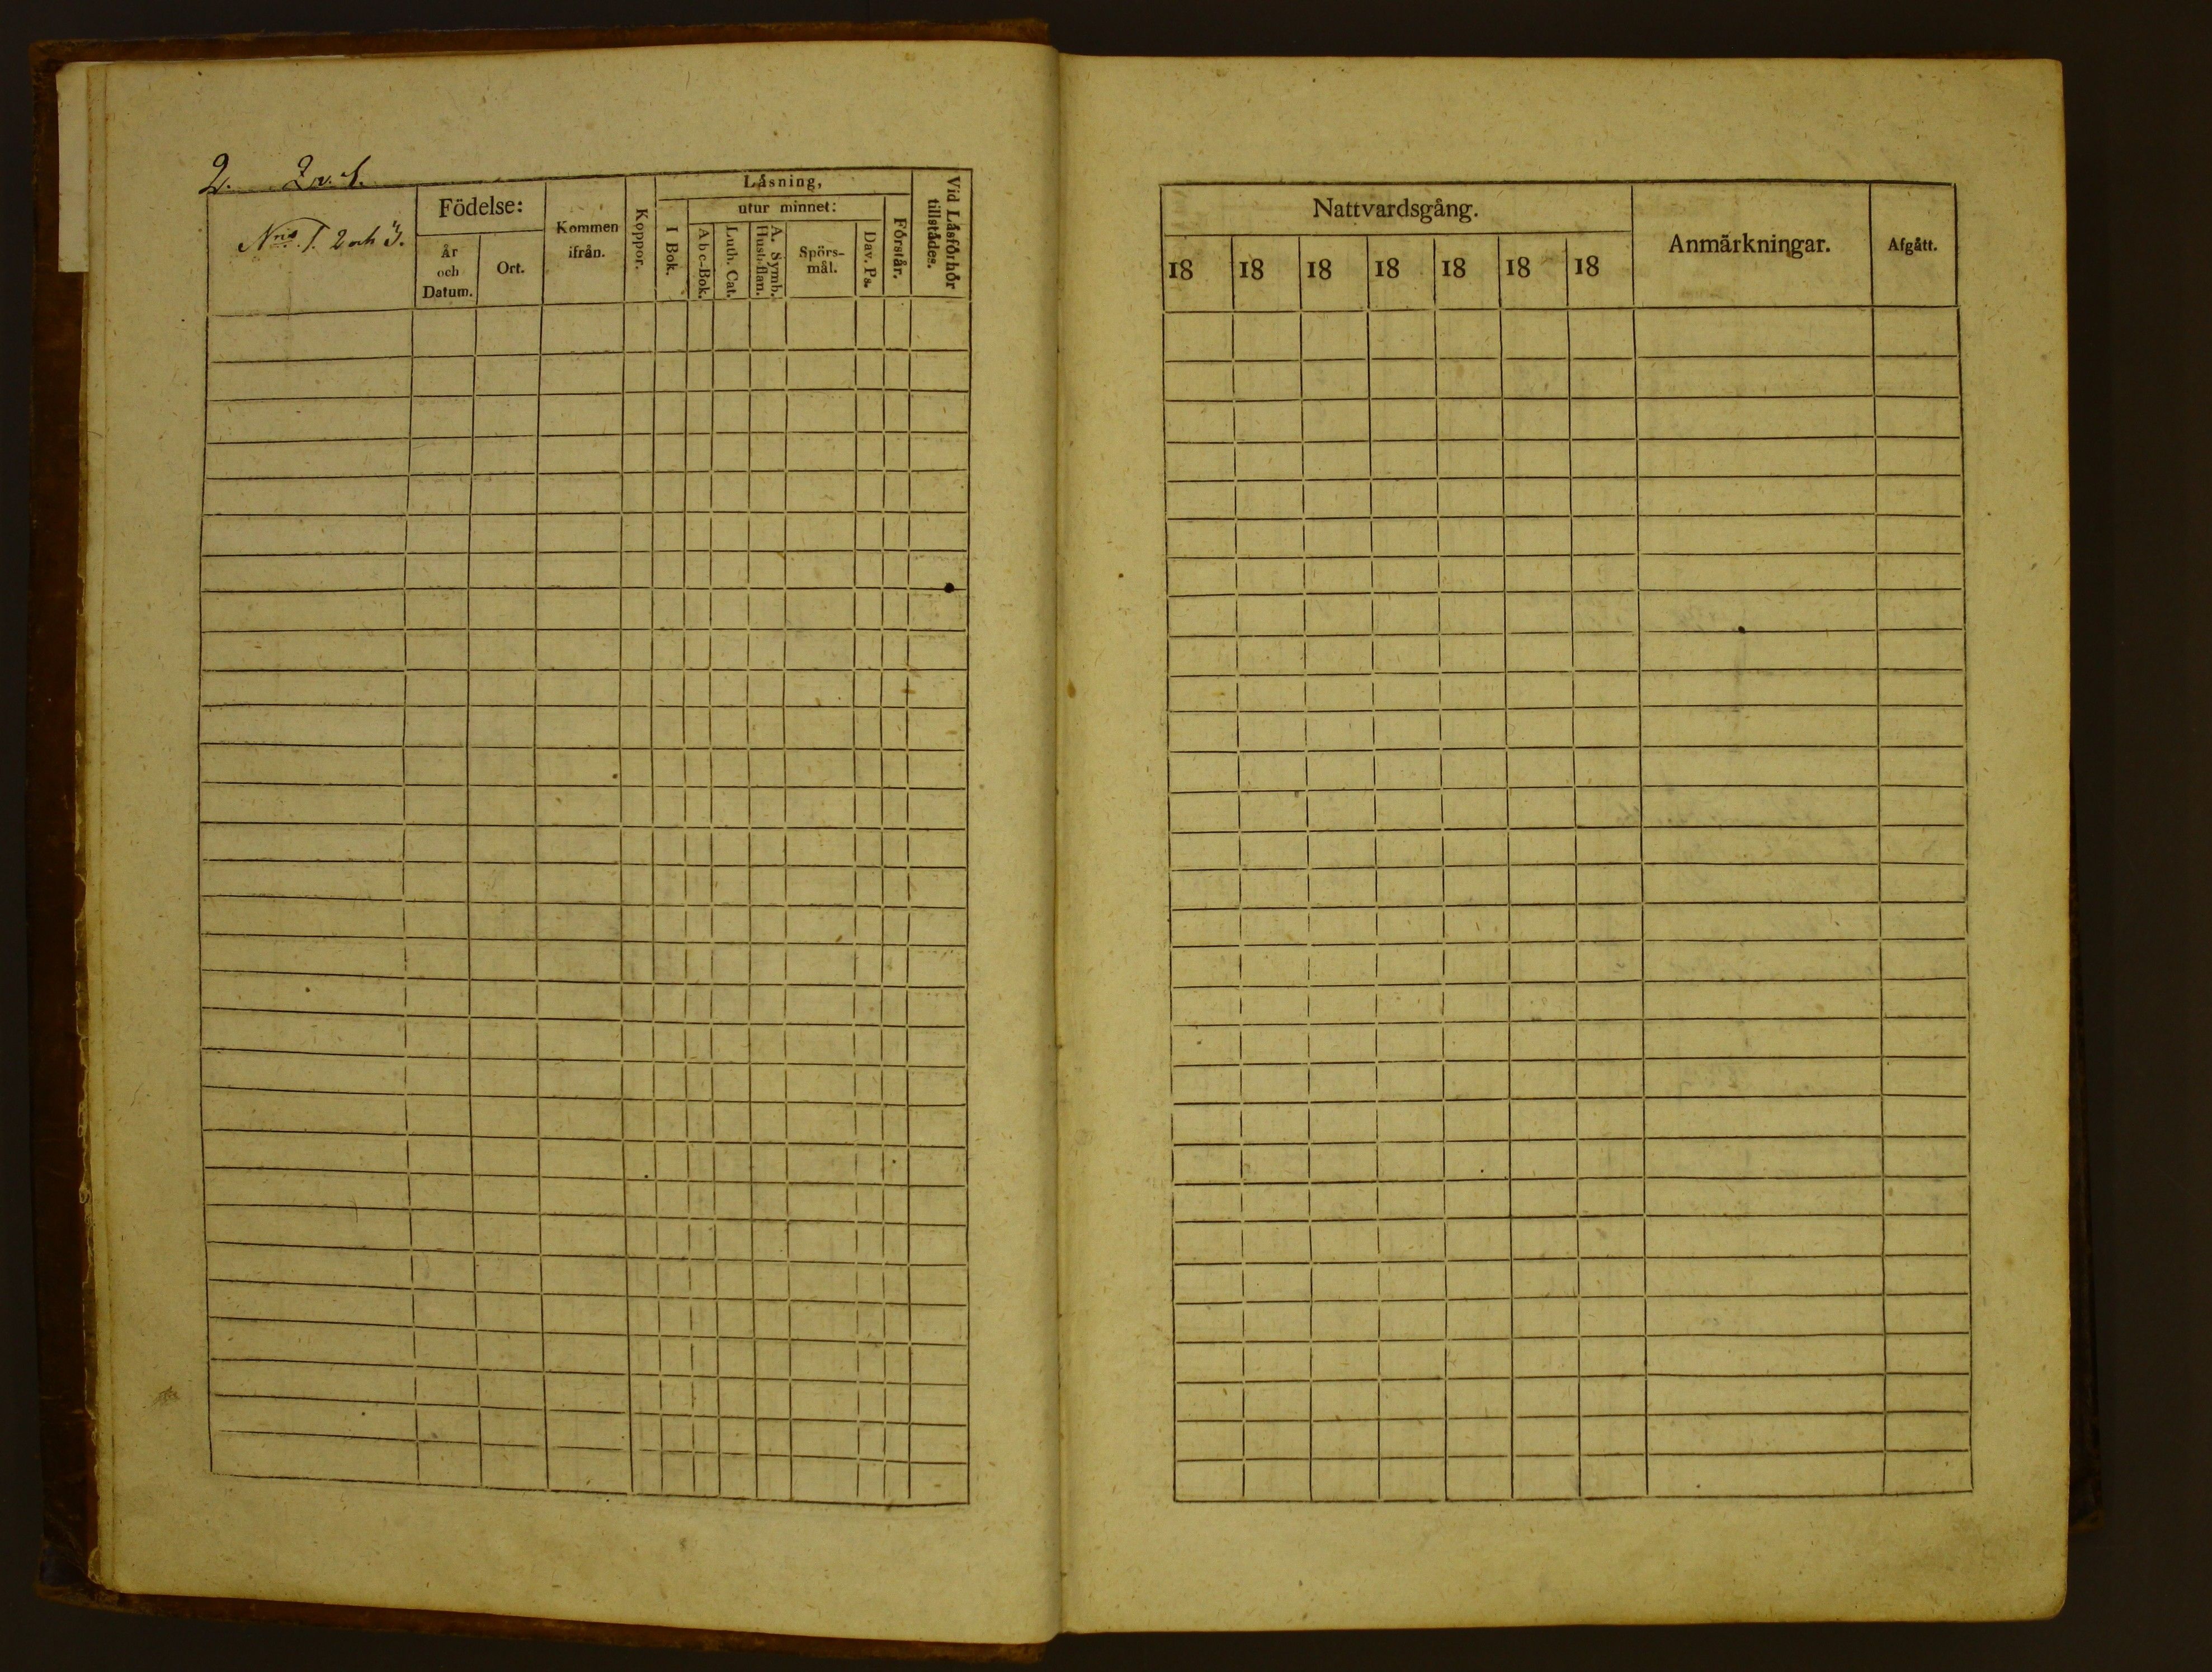 2.
N:ris 1. 2 och 3.
Födelse:
År
och
Datum.
Ort.
Kommen
ifrån.
Koppor.
Låsning,
I Bok.
utur minnet:
Abc-Bok.
Luth. Cat.
A. Symb.
Hush-flan.
Spörs-
mål.
Dav. Ps.
Förstår.
Vid Låsförhör
tillstådes.
Nattvardsgång.
18 18 18 18 18 18 18
Anmärkningar.
Afgått.